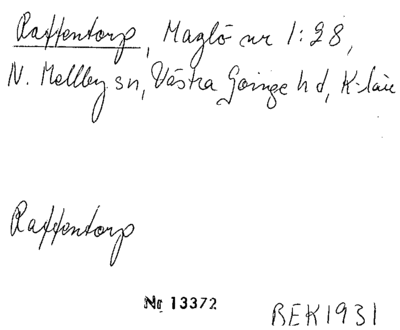 Raffentorp, Maglö nr 1:28,
N. Mellby sn, Västra Göinge hd, K-län
Raffentorp
Nr 13372
BEK1931